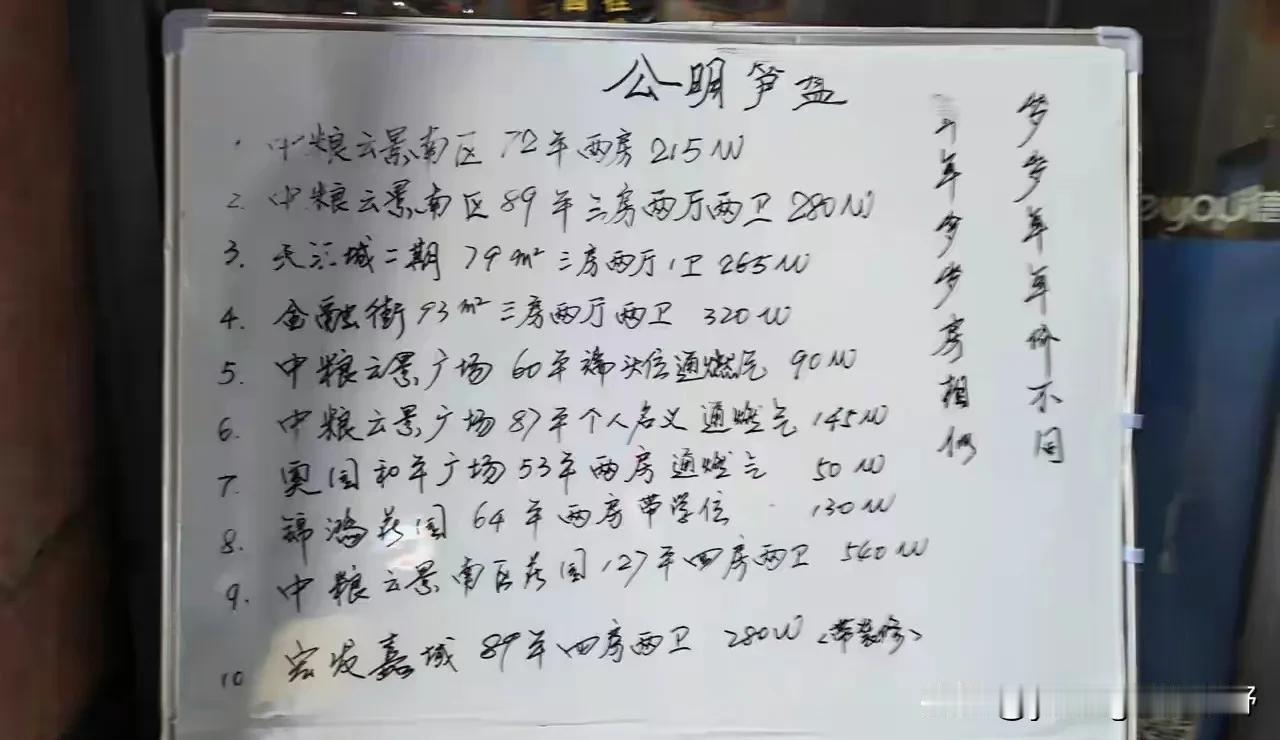 公明笋盘
1. 中粮云景南区 72平两房 215W
2. 中粮云景南区 89平三房两厅两卫 280W
3. 天汇城二期 79m² 三房两厅1卫 265W
4. 金融街 93m² 三房两厅两卫 320W
5. 中粮云景广场 60平 端头位通燃气 90W
6. 中粮云景广场 87平 个人名义 通燃气 145W
7. 奥园和平广场 53平两房通燃气 50W
8. 锦鸿花园 64平两房带学位 130W
9. 中粮云景南区花园 127平四房两卫 540W
10 宏发嘉域 89平四房两卫 280W (带装修)
岁岁年年价不同
年年岁岁房相似
eyou信